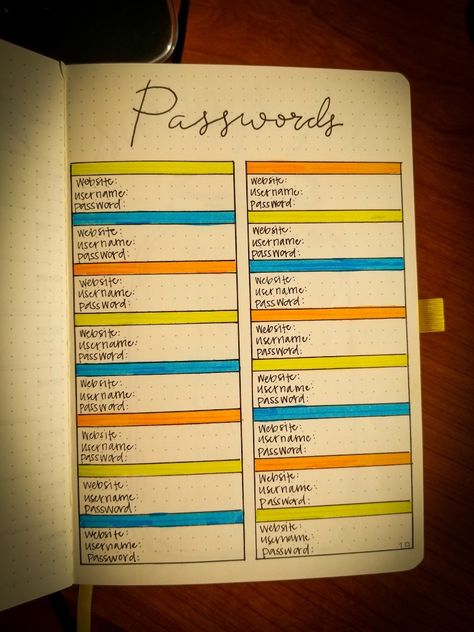 Passwords
website:
username:
password:
website:
username:
password:
website:
username:
password:
website:
username:
password:
website:
username:
password:
website:
username:
password:
website:
username:
password:
website:
username:
password:
website:
username:
password:
website:
username:
password:
website:
username:
password:
website:
username:
password:
website:
username:
password:
website:
username:
password:
website:
username:
password:
website:
username:
password: